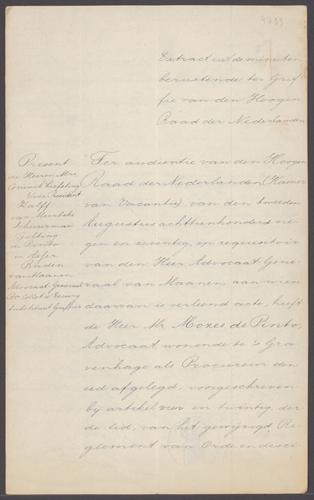 Extract uit de minuten
berustende ter Grif
fie van den Hoogen
Raad der Nederlanden
Present
de Heeren Mrs
Coninck Liefsting
Vice President
Kalff
van Meerbeke
de Pinto
Advocaat Generaal
Substituut Griffier
Ter audientie van den Hoogen
Raad der Nederlanden (Kamer
van Vacantie) van den tweeden
Augustus achttienhonderd ne
gen en zeventig, op requisitoir
van den Heer Advocaat Gene
raal van Maanen, aan wien
daarvan is verleend acte, heeft
de Heer Mr Mozes de Pinto,
Advocaat wonende te 's Gra
venhage als Procureur den
eed afgelegd, voorgeschreven
bij artikel vier en twintig, der
de lid, van het gewijzigd Re
glement van Orde en disci